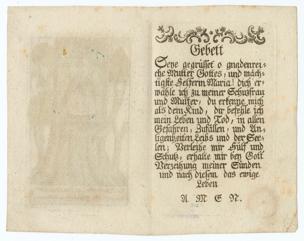 Gebett
Seye gegrüsset o gnadenrei-
che Mutter Gottes, und mäch-
tigste Helferin Maria! dich er-
wähle ich zu meiner Schutzfrau
und Mutter, du erkenne mich
als dein Kind, dir befehle ich
mein Leben und Tod, in allen
Gefahren, Zufällen, und An-
ligenheiten Leibs und der See-
len, Verleyhe mir Hülf und
Schutz, erhalte mir bey Gott
Verzeihung meiner Sünden
und nach diesem das ewige
Leben
AMEN.